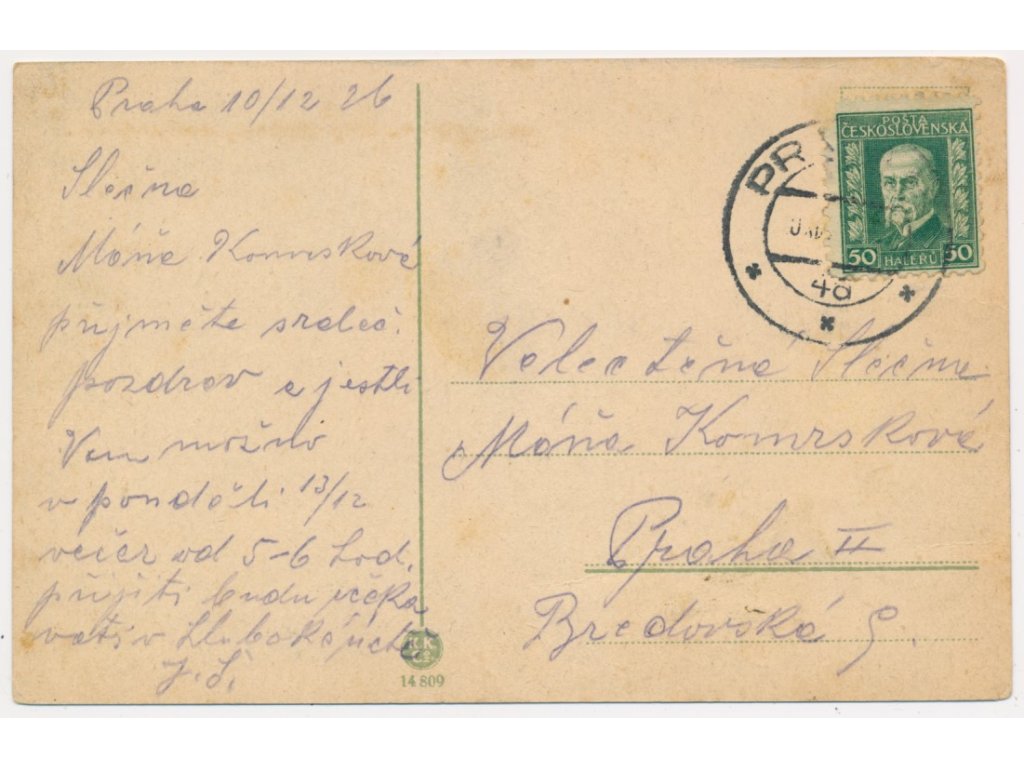 Praha 10/12 26
Slečna
Máňa Komrsková
přijměte srdeč.
pozdrav a jestli
Vam možno
v ponděli 13/12
večer od 5-6 hod.
přijiti budu očeka
vati v hluboké úctě
J.S.
POŠTA
ČESKOSLOVENSKÁ
50 HALÉŘŮ 50
PRA
4d
Velectěná Slečna
Máňa Komrsková
Praha II
Bredovská 9.
14 809